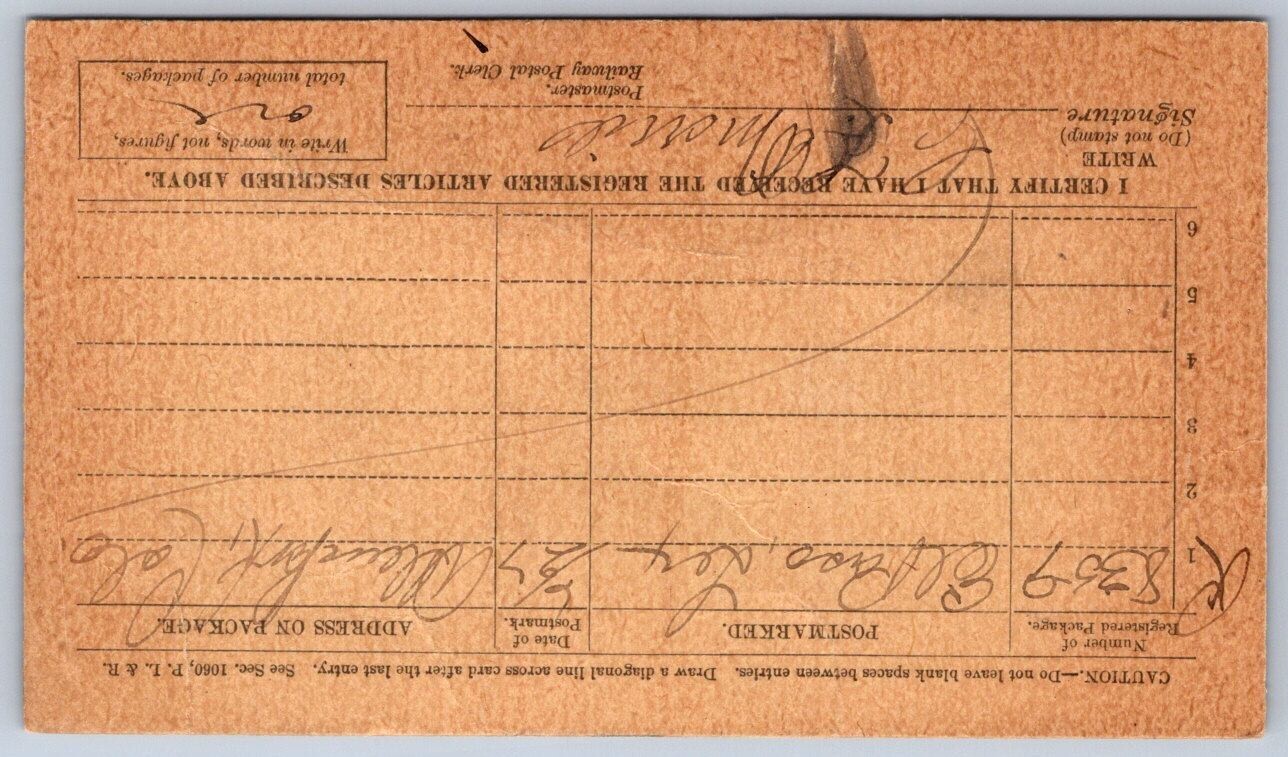 CAUTION.—Do not leave blank spaces between entries. Draw a diagonal line across card after the last entry. See Sec. 1060, P. L. & R.
Number of Registered Package.
POSTMARKED.
Date of Postmark.
ADDRESS ON PACKAGE.
R 1 8309 El Paso, Tex 5/27 Colo.
2
3
4
5
6
I CERTIFY THAT I HAVE RECEIVED THE REGISTERED ARTICLES DESCRIBED ABOVE.
WRITE
(Do not stamp)
Signature
Postmaster.
Railway Postal Clerk.
Write in words, not figures,
one
total number of packages.